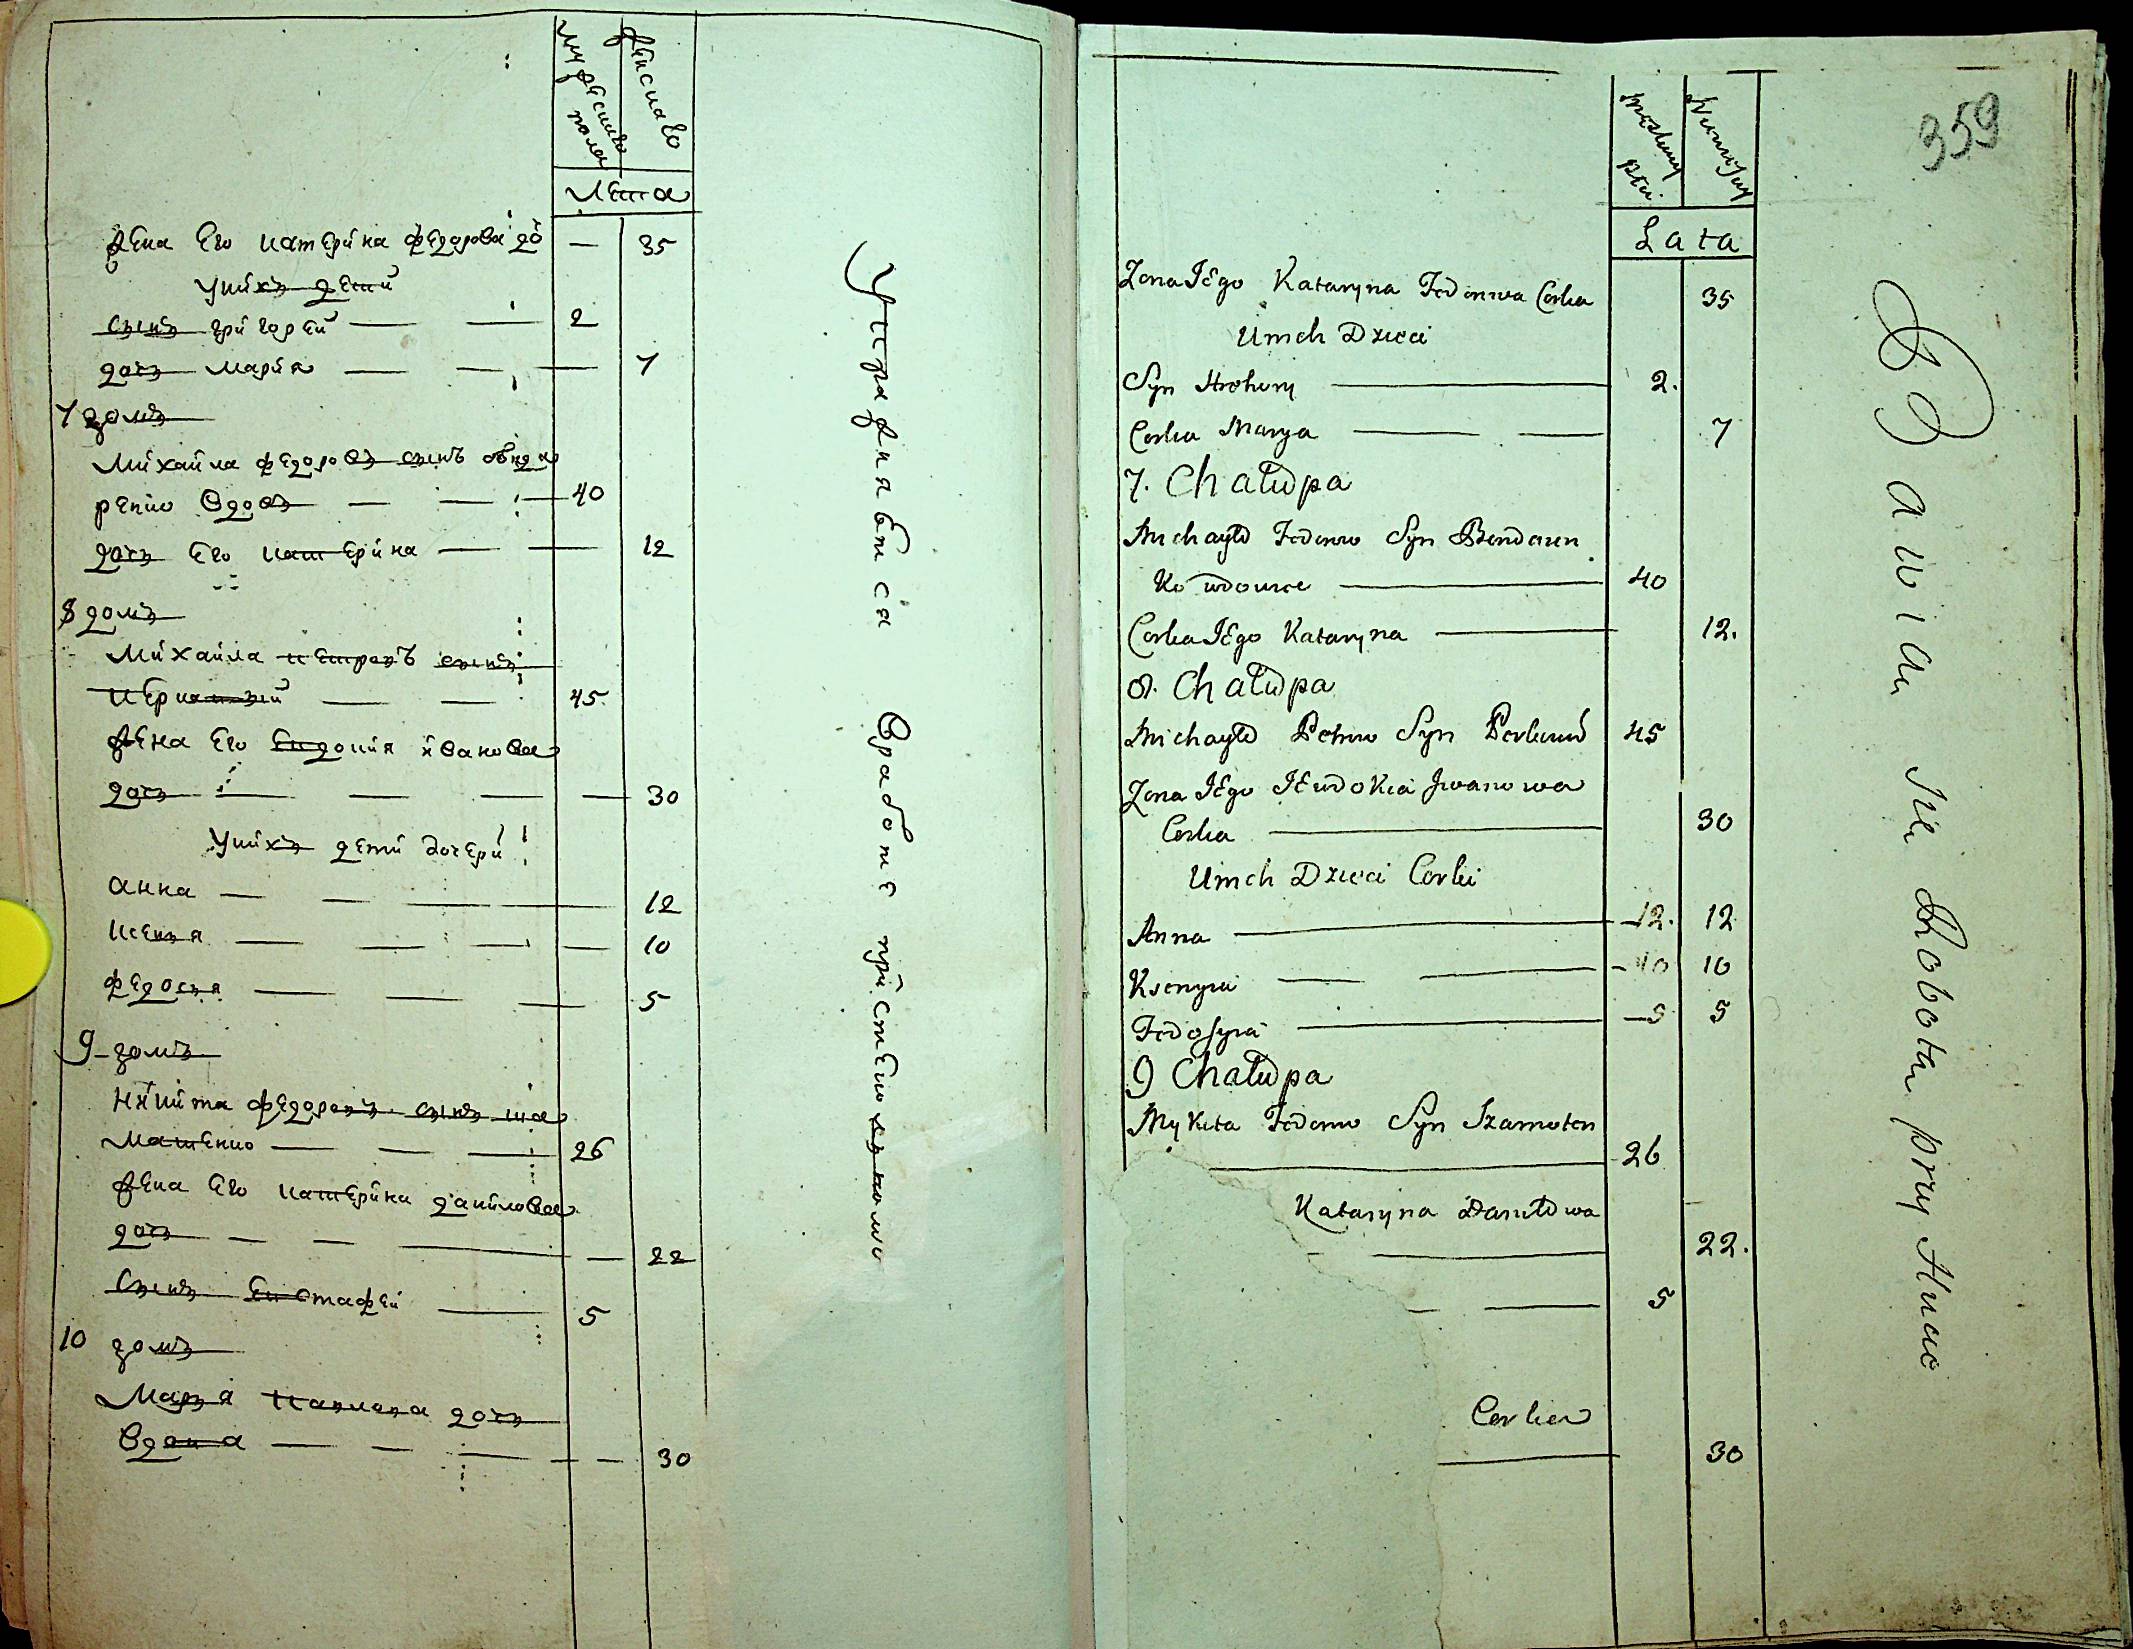 мужеска пола
женска го
лета
жена его катерина федорова до 35
у них дети
сынъ григорей 2
дочъ мария 7
7 домъ
михайла федоровъ сынъ
вдовъ 40
дочъ его катерина 12
8 домъ
михайла петровъ сынъ
45
жена его евдокия иванова
дочъ 30
у них дети дочери
анна 12
ксеня 10
федосия 5
9 домъ
никита федоровъ сынъ ша
матенко 26
жена его катерина данилова
дочъ 22
сынъ евстафей 5
10 домъ
Маря павлова дочъ
вдова 30
Упражняются
в работе при
359
Męskiey Płci
Lata
Zona Jego Kataryna Fedorowa Corka 35
U nich Dzieci
Syn Hrohory 2.
Corka Marya 7
7. Chałupa
Michayło Fedorow Syn Bondaren
ko wdowiec 40
Corka Jego Kataryna 12.
8. Chałupa
Michayło Petrow Syn 45
Zona Jego Jewdokia Jwanowa
Corka 30
U nich Dzieci Corki
Anna 12. 12
Ksenyia 10 10
Fedosyia 5 5
9 Chałupa
Mykita Fedorow Syn Szamaten
26
Kataryna Daniłowa
22.
5
Corka
30
Bawią Sie Robotą przy